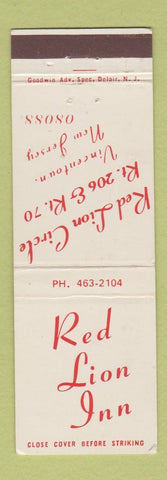 Goodwin Adv. Spec. Delair, N. J.
Red Lion Circle
Rt. 206 & Rt. 70
Vincentown,
New Jersey
08088
PH. 463-2104
Red
Lion
Inn
CLOSE COVER BEFORE STRIKING